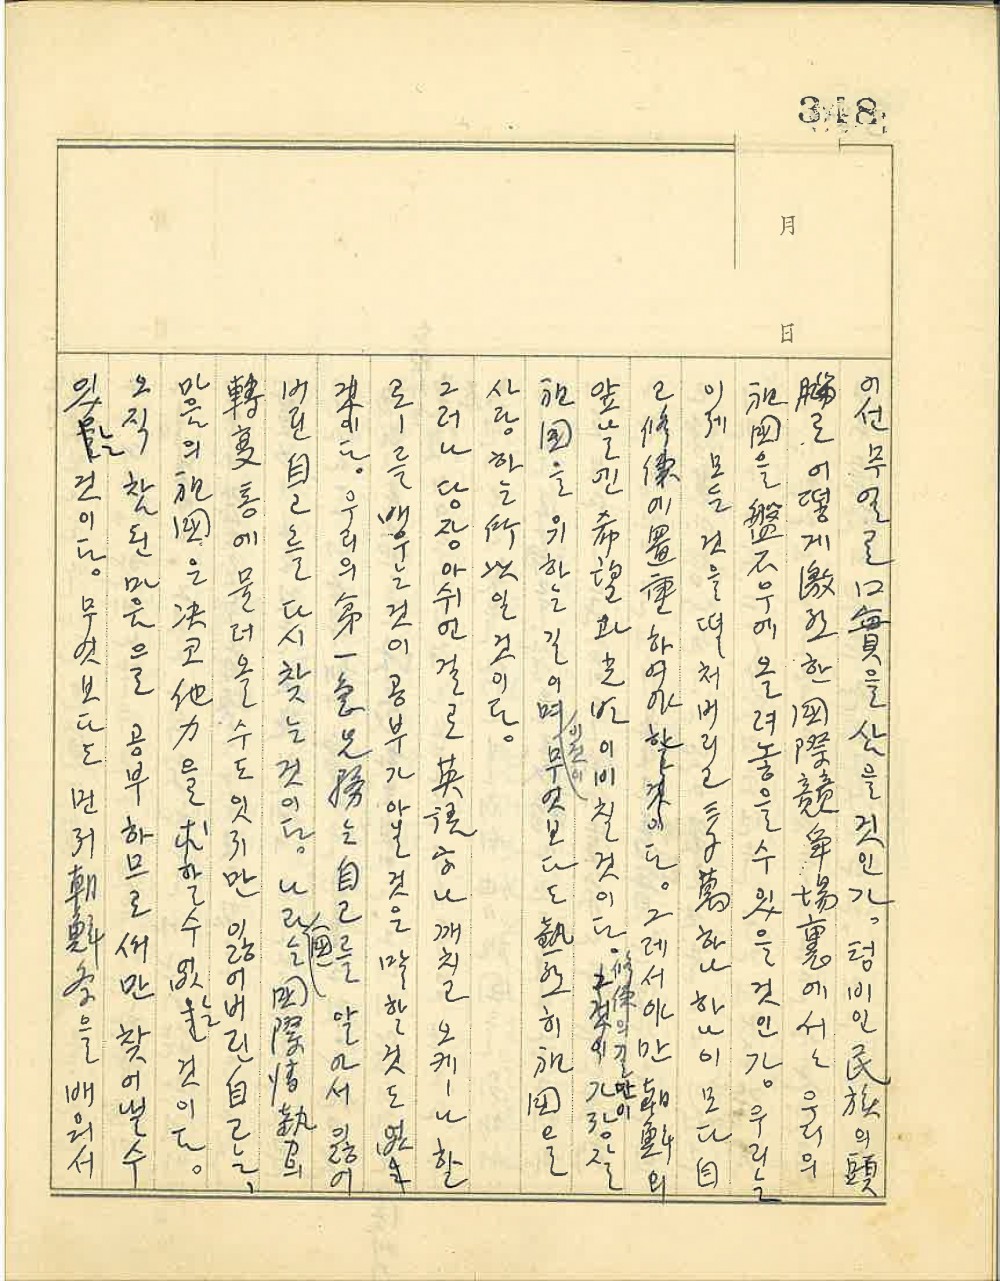 348
月
日
이선 무얼로 口實을 삼을 것인가。 텅비인 民族의 頭
腦로 어떻게 激烈한 國際競爭場裏에서는 우리의
祖國을 盤石우에 올려놓을수 있을 것인가。 우리는
이제 모든 것을 떨처버리고 三千萬 하나하나이 모다 自
己修養에 置重하여야 할것이다。 그레서야만 朝鮮의
앞날엔 希望과 光明이 비칠 것이다。 修養의 길만이 그것이 가장 잘
祖國을 위하는 길이며 무엇보다도 熱烈히 祖國을
사랑하는 所以일 것이다。
그러나 당장 아쉬언 걸로 英語 마나 깨치고 오케ー나 할
로ー를 배우는것이 공부가 아닐것은 말할것도 없을
것이다。 우리의 第一急先務는 自己를 알아서 잃어
버린 自己를 다시 찾는 것이다。 나라는 國際情勢의
轉變통에 물러올수도 잇지만 잃어버린 自己는,
마음의 祖國은 決코 他力을 求할수 없을 것이다。
오직 참된 마음으로 공부하므로써만 찾어낼수
있을 것이다。 무엇보다도 먼저 朝鮮 을 배워서